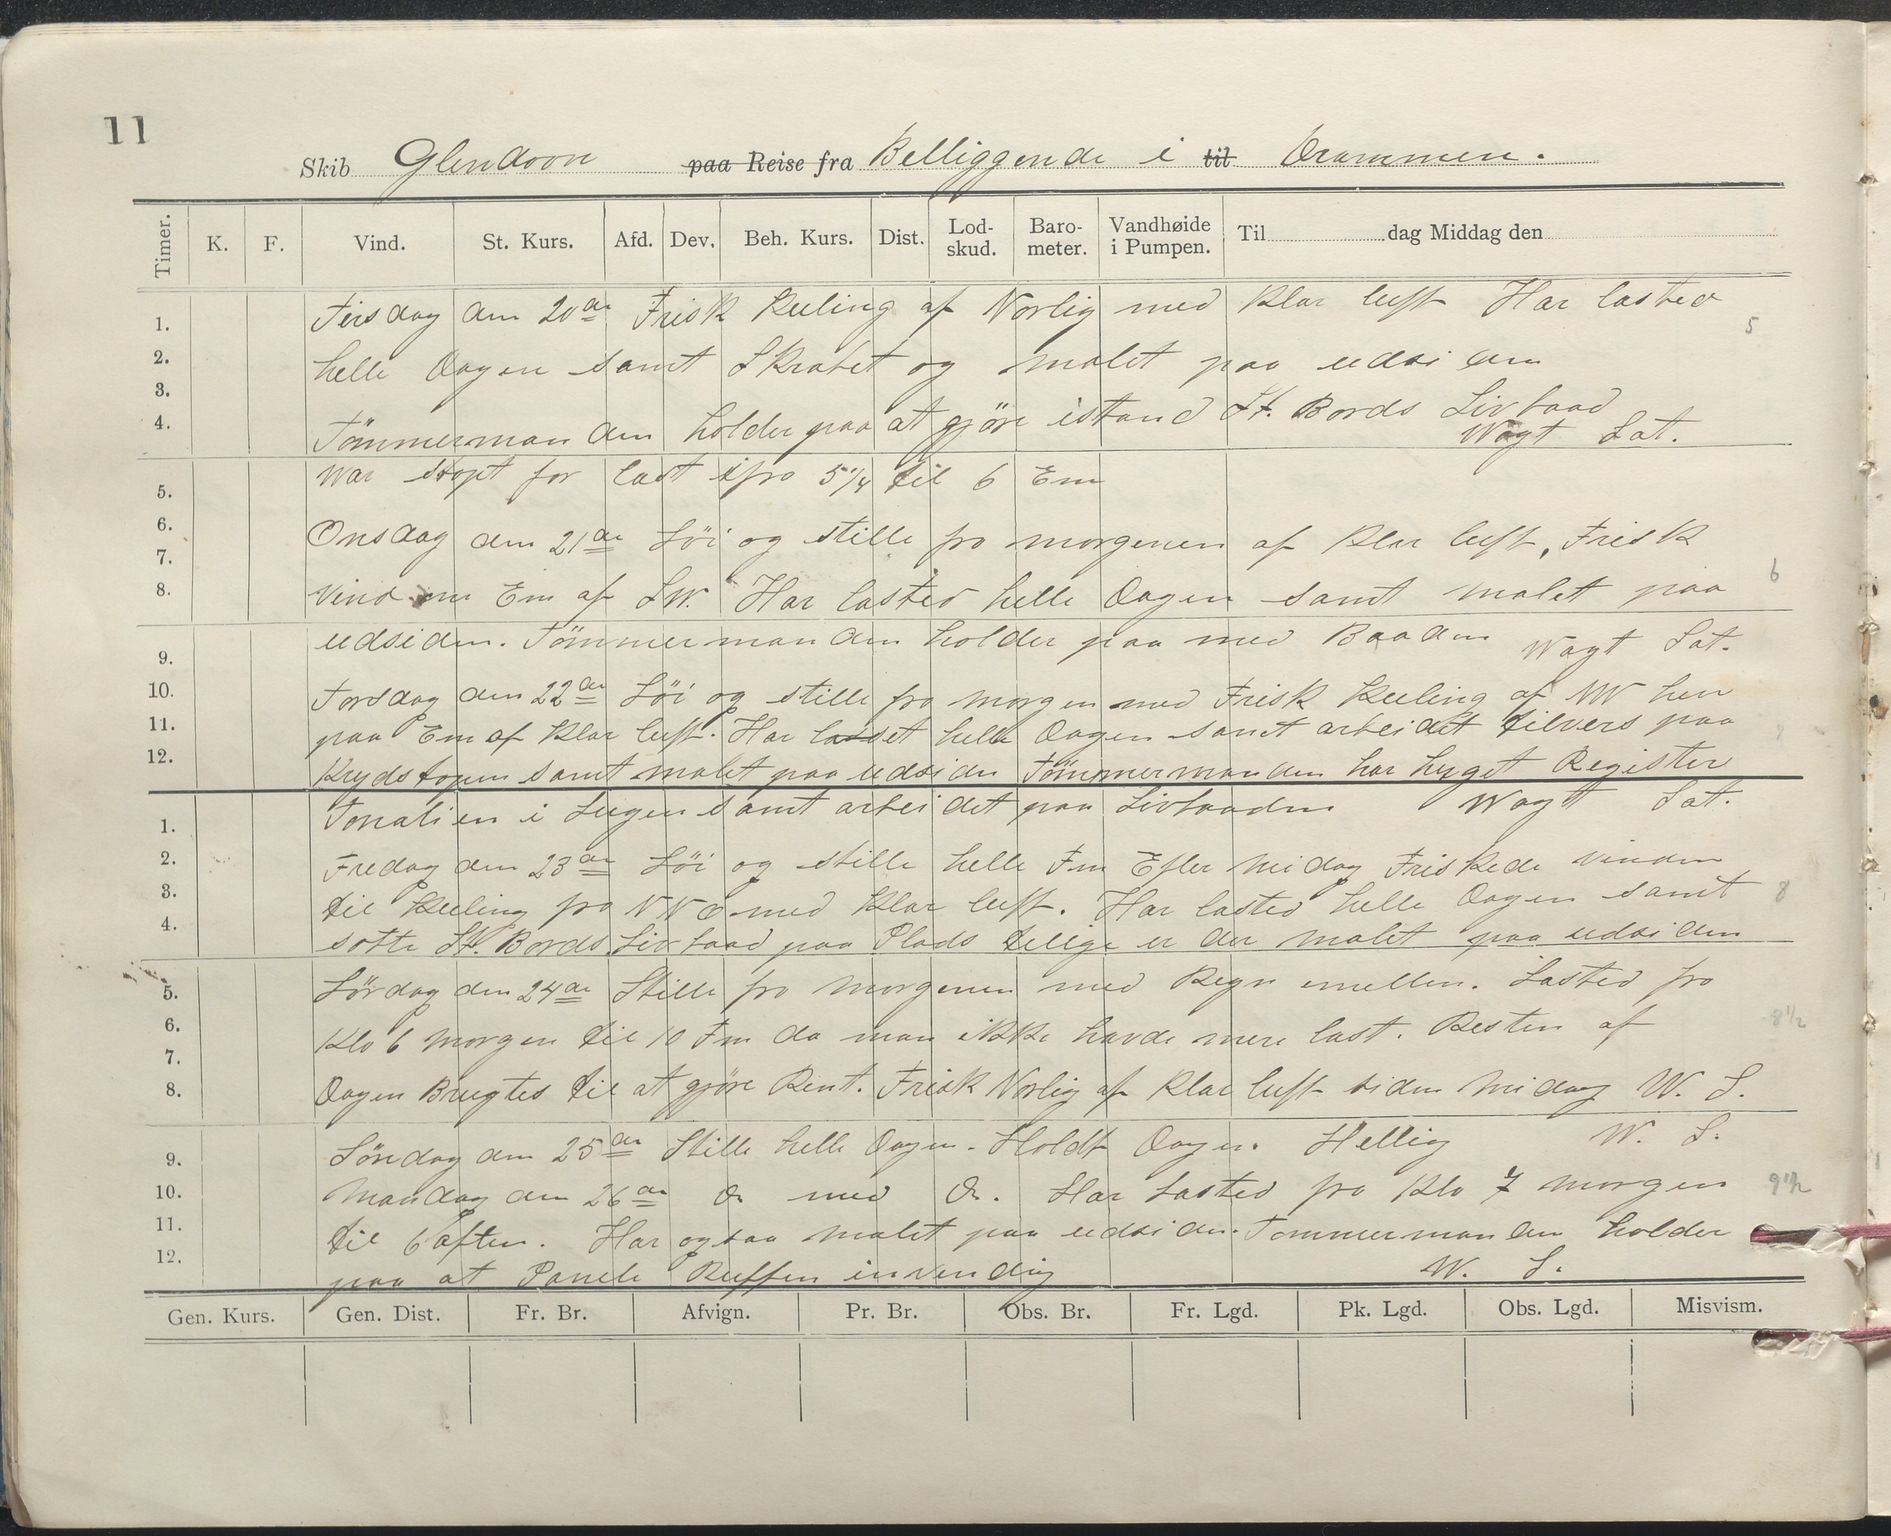 11
Skib Glendoon paa Reise fra Belliggende i til Drammen.
Timer. K. F. Vind. St. Kurs. Afd. Dev. Beh. Kurs. Dist. Lod-skud. Baro-meter. Vandhøide i Pumpen. Til dag Middag den
1. Tirsdag den 20de Frisk Kuling af Norlig med Klar luft Har lasted
5
2. helle Dagen samt Skrabet og malet paa udsiden
3.
4. Tömmermanden holder paa at gjöre istand St. Bords Livbaad
Wagt Sat.
5. War stopt for last ifra 5 1/4 til 6 Em
6. Onsdag den 21de Löi og stille fra morgenen af Klar luft, Frisk
7.
8. Vind om Em af SW. Har lasted helle Dagen samt malet paa
6
9. udsiden. Tömmermanden holder paa med Baaden Wagt Sat.
10. Torsdag den 22de Löi og stille fra morgen med Frisk Kuling af NW hen
11. paa Em af Klar luft. Har lasset helle Dagen samt arbeidet tilvers paa
12. Krydstopen samt malet paa udsiden Tömmermanden har hugget Register
1. Tonalien i Lugen samt arbeidet paa Livbaaden Wagt Sat.
2. Fredag den 23de Löi og stille helle Fm Efter Midag Friskede vinden
3. til Kuling fra NNO med Klar luft. Har lasted helle Dagen samt
8
4. satte St. Bords Livbaad paa Plads tilige er der malet paa udsiden
5. Lördag den 24de Stille fra morgenen med Regn imellem. Lasted fra
6. Klo 6 morgen til 10 Fm da man ikke havde mere last. Resten af
8 1/2
7.
8. Dagen Brugtes til at gjöre Rent. Frisk Norlig af Klar luft siden Midag W. S.
9. Söndag den 25de Stille helle Dagen. Holdt Dagen Hellig W. S.
10. Mandag den 26de do med do. Har Lasted fra Klo 7 morgen
9 1/2
11. til 6 aften. Har ogsaa malet paa udsiden. Tommermanden holder
12. paa at Panele Ruffen invendig W. S.
Gen. Kurs. Gen. Dist. Fr. Br. Afvign. Pr. Br. Obs. Br. Fr. Lgd. Pk. Lgd. Obs. Lgd. Misvism.